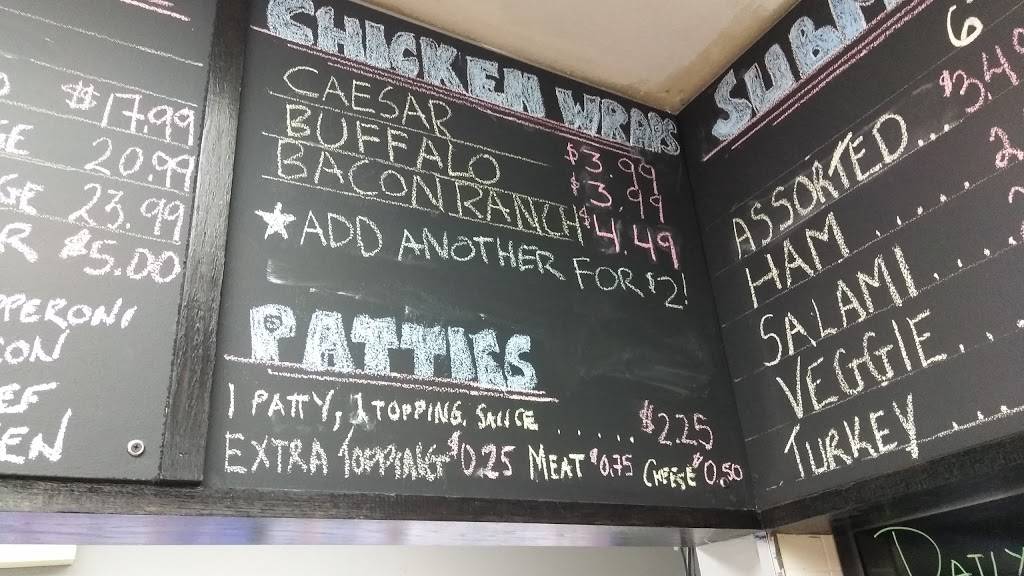 $17.99
20.99
23.99
$5.00
CHICKEN WRAPS
CAESAR $3.99
BUFFALO $3.99
BACON RANCH $4.49
ADD ANOTHER FOR $2!
PATTIES
1 PATTY, 1 TOPPING, SAUCE ...... $2.25
EXTRA TOPPING $0.25 MEAT $0.75 CHEESE $0.50
6
ASSORTED..
HAM.....
SALAMI....
VEGGIE...
TURKEY....